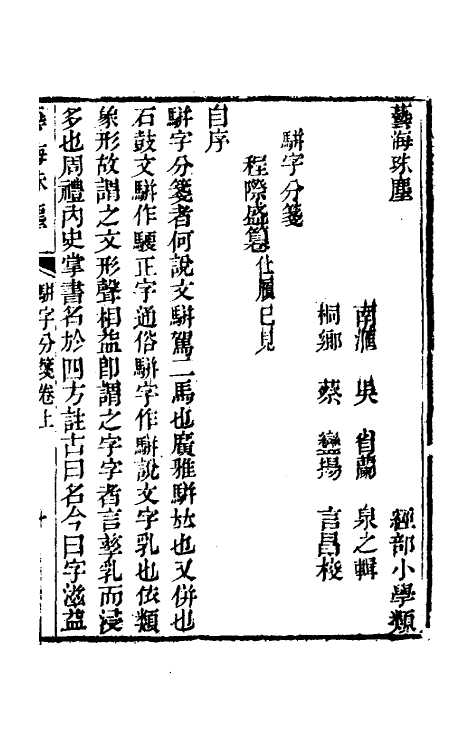 藝海珠塵　經部小學類
南滙　吳　省蘭　泉之輯
桐鄉　蔡　鑾揚　言昌校
騈字分箋
程際盛纂　仕履已見
自序
騈字分箋者何說文騈駕二馬也廣雅騈竝也又併也
石鼓文騈作騝正字通俗騈字作駢說文字乳也依類
象形故謂之文形聲相益卽謂之字字者言孳乳而浸
多也周禮內史掌書名於四方註古曰名今曰字滋益
藝海珠塵　騈字分箋卷上　一